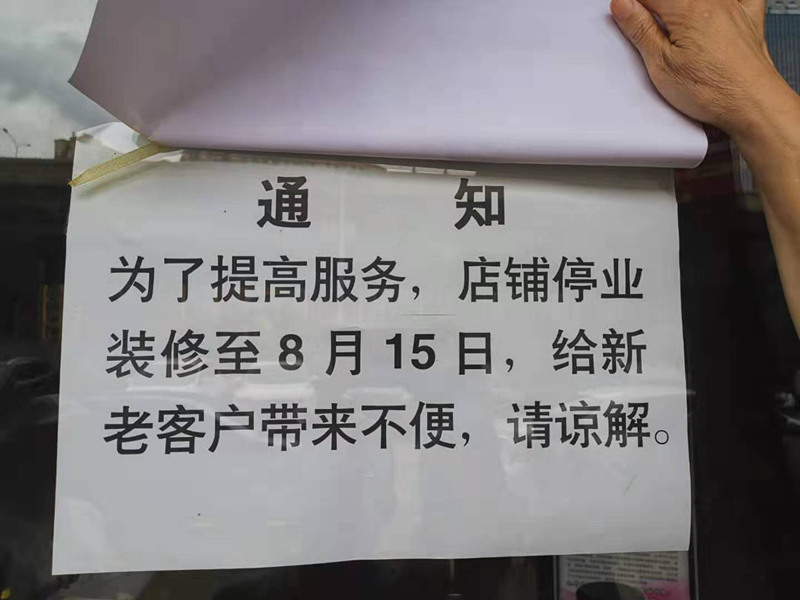 通 知
为了提高服务，店铺停业
装修至8月15日，给新
老客户带来不便，请谅解。